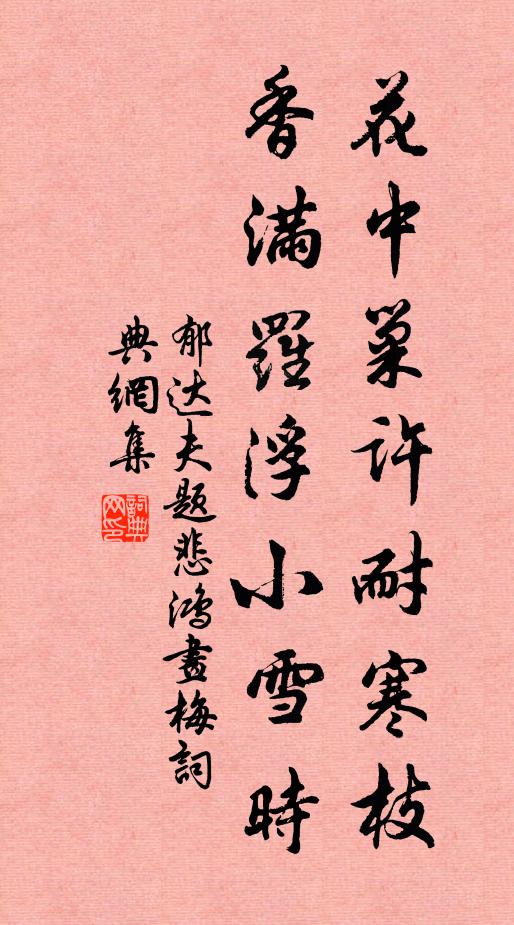 花中巢許耐寒枝
香滿羅浮小雪時
郁达夫題悲鴻畫梅詞
典網集
詞典
网印